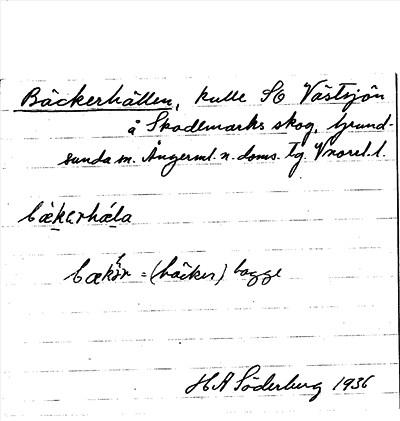 Bäckerhällen, kulle SO Västsjön
å Skadlmarks skog, Grund-
sunda sn. Ångerml. n. doms. Tg. Vnorrl. l.
bækerhæla
bækər = (bäcker) bagge
H A Söderberg 1936